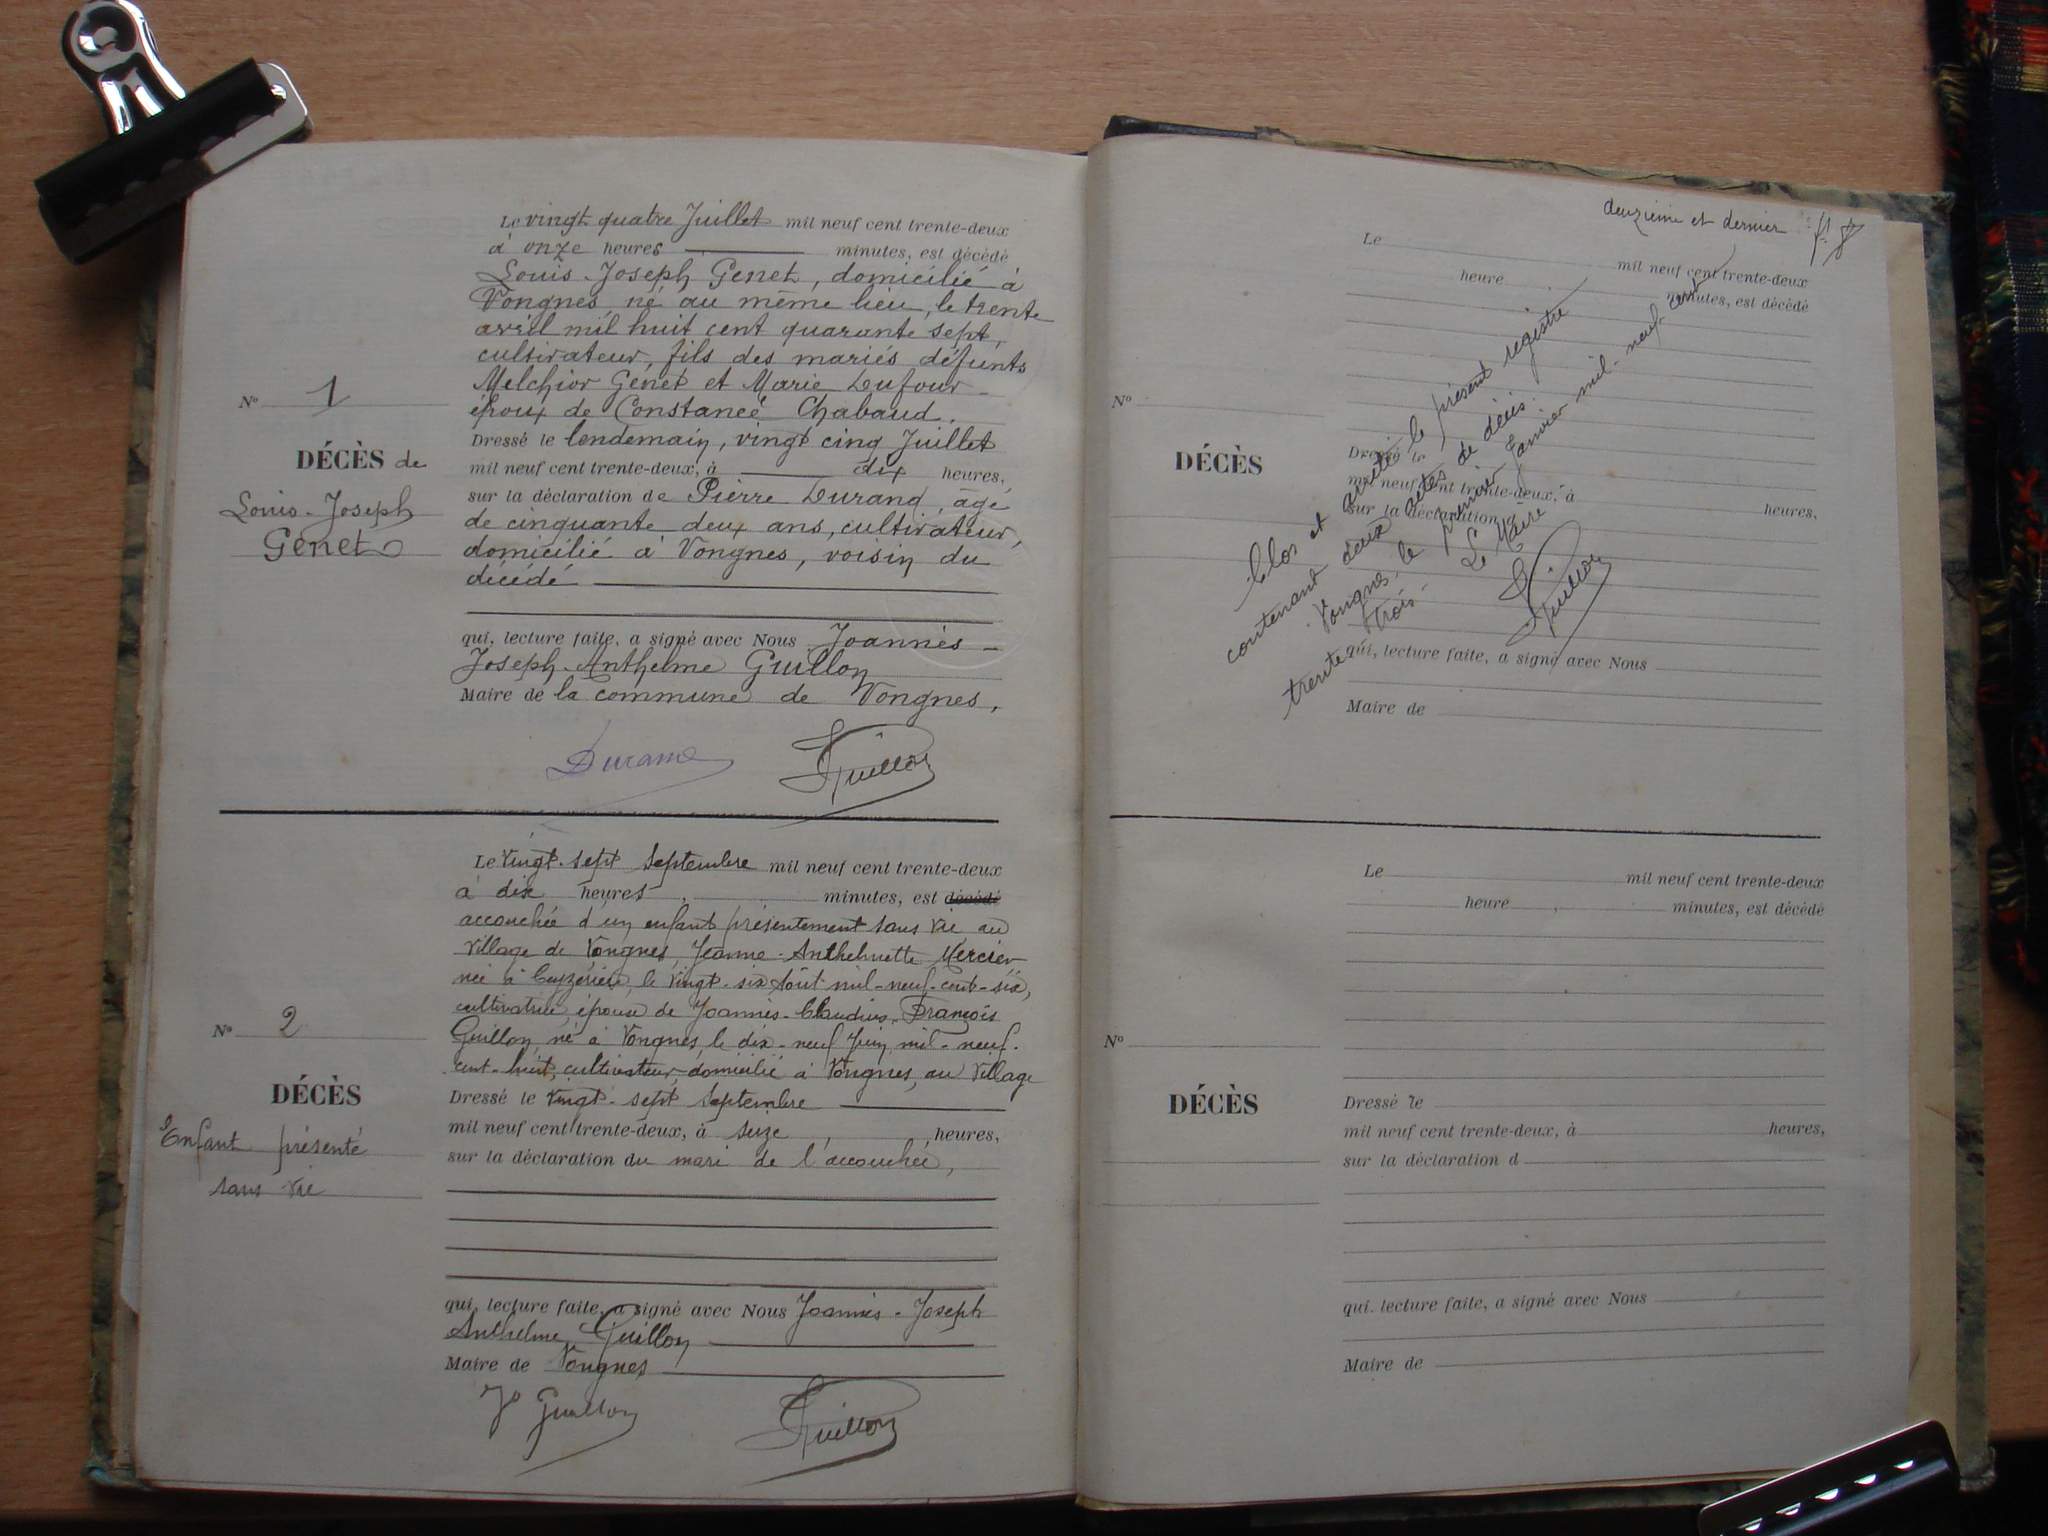 Le vingt quatre Juillet mil neuf cent trente-deux
à onze heures minutes, est décédé
Louis-Joseph Genet, domicilié à
Vongnes, né au même lieu, le trente
avril mil huit cent quarante sept,
cultivateur, fils des mariés défunts
Melchior Génet et Marie Dufour
époux de Constance Chabaud.
Nº 1
DÉCÈS de
Louis-Joseph
Genet
Dressé le lendemain, vingt cinq Juillet
mil neuf cent trente-deux, à dix heures,
sur la déclaration de Pierre Durand, âgé
de cinquante deux ans, cultivateur,
domicilié à Vongnes, voisin du
décédé
qui, lecture faite, a signé avec Nous Joannès
Joseph-Anthelme Guillon
Maire de la commune de Vongnes,
Durand Guillon
Le vingt-sept septembre mil neuf cent trente-deux
à dix heures, minutes, est décédé
accouchée d'un enfant présentement sans vie au
village de Vongnes, Jeanne-Anthelmette Mercier
née à Ceyzérieu, le vingt-six Août mil-neuf-cent-six,
cultivatrice, épouse de Joannès-Claudius-François
Guillon, né à Vongnes, le dix-neuf Juin mil-neuf-
cent-huit, cultivateur, domicilié à Vongnes, au Village
Nº 2
DÉCÈS
Enfant présenté
sans vie
Dressé le vingt-sept septembre
mil neuf cent trente-deux, à seize, heures,
sur la déclaration du mari de l'accouchée,
qui, lecture faite, a signé avec Nous Joannès-Joseph
Anthelme Guillon
Maire de Vongnes
Guillon Guillon
deuxième et dernier
Le mil neuf cent trente-deux
heure minutes, est décédé
Nº
DÉCÈS
Dressé le
mil neuf cent trente-deux, à heures,
sur la déclaration
qui, lecture faite, a signé avec Nous
Maire de
Clos et arrêté le présent registre
contenant deux actes de décès.
Vongnes, le premier Janvier mil-neuf-cent
trente trois.
Le Maire
Guillon
Le mil neuf cent trente-deux
heure, minutes, est décédé
Nº
DÉCÈS
Dressé le
mil neuf cent trente-deux, à heures,
sur la déclaration d
qui, lecture faite, a signé avec Nous
Maire de